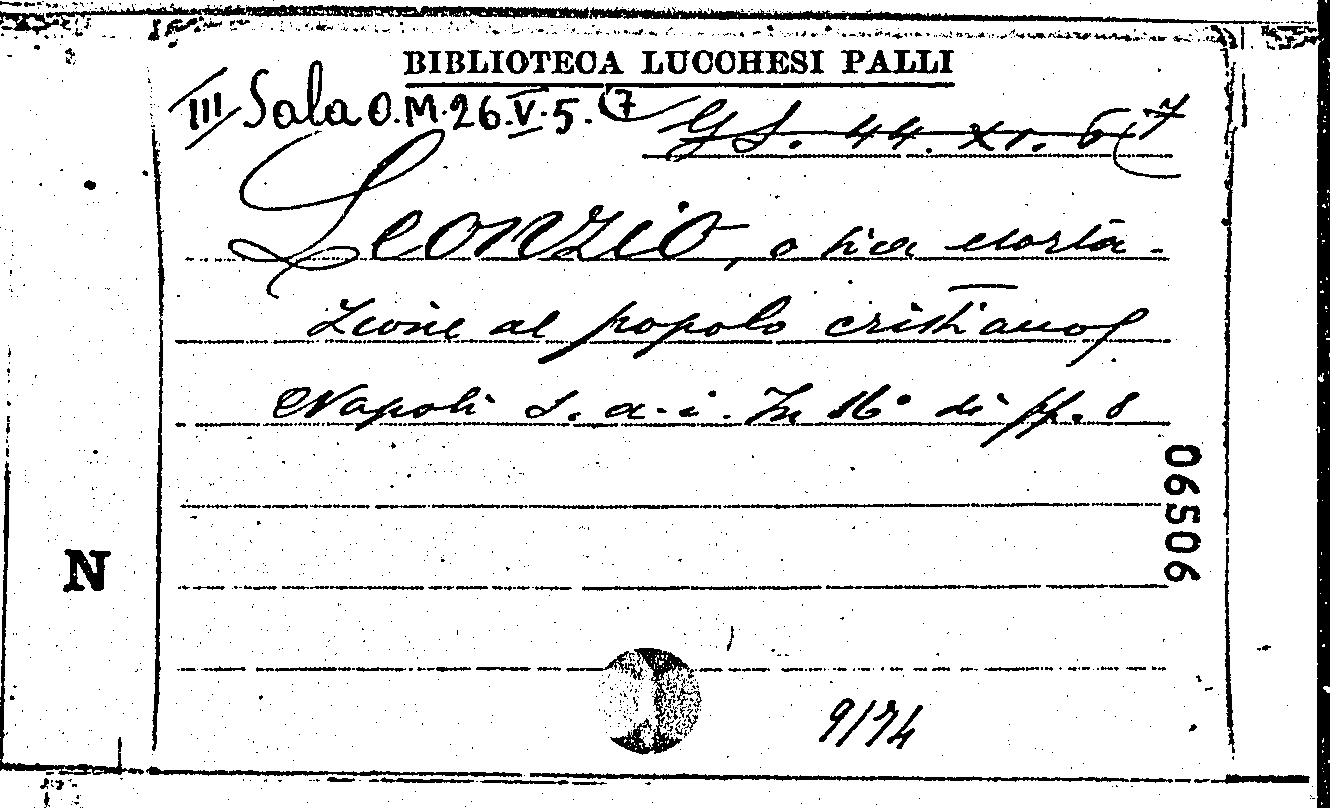 BIBLIOTECA LUCCHESI PALLI
III Sala O.M.26.V.5.(7
GS. 44. XI. 6(7
Leonzio, o sia esorta-
zione al popolo cristiano
Napoli s. a. i. In 16° di pp. 8
06506
N
9/74